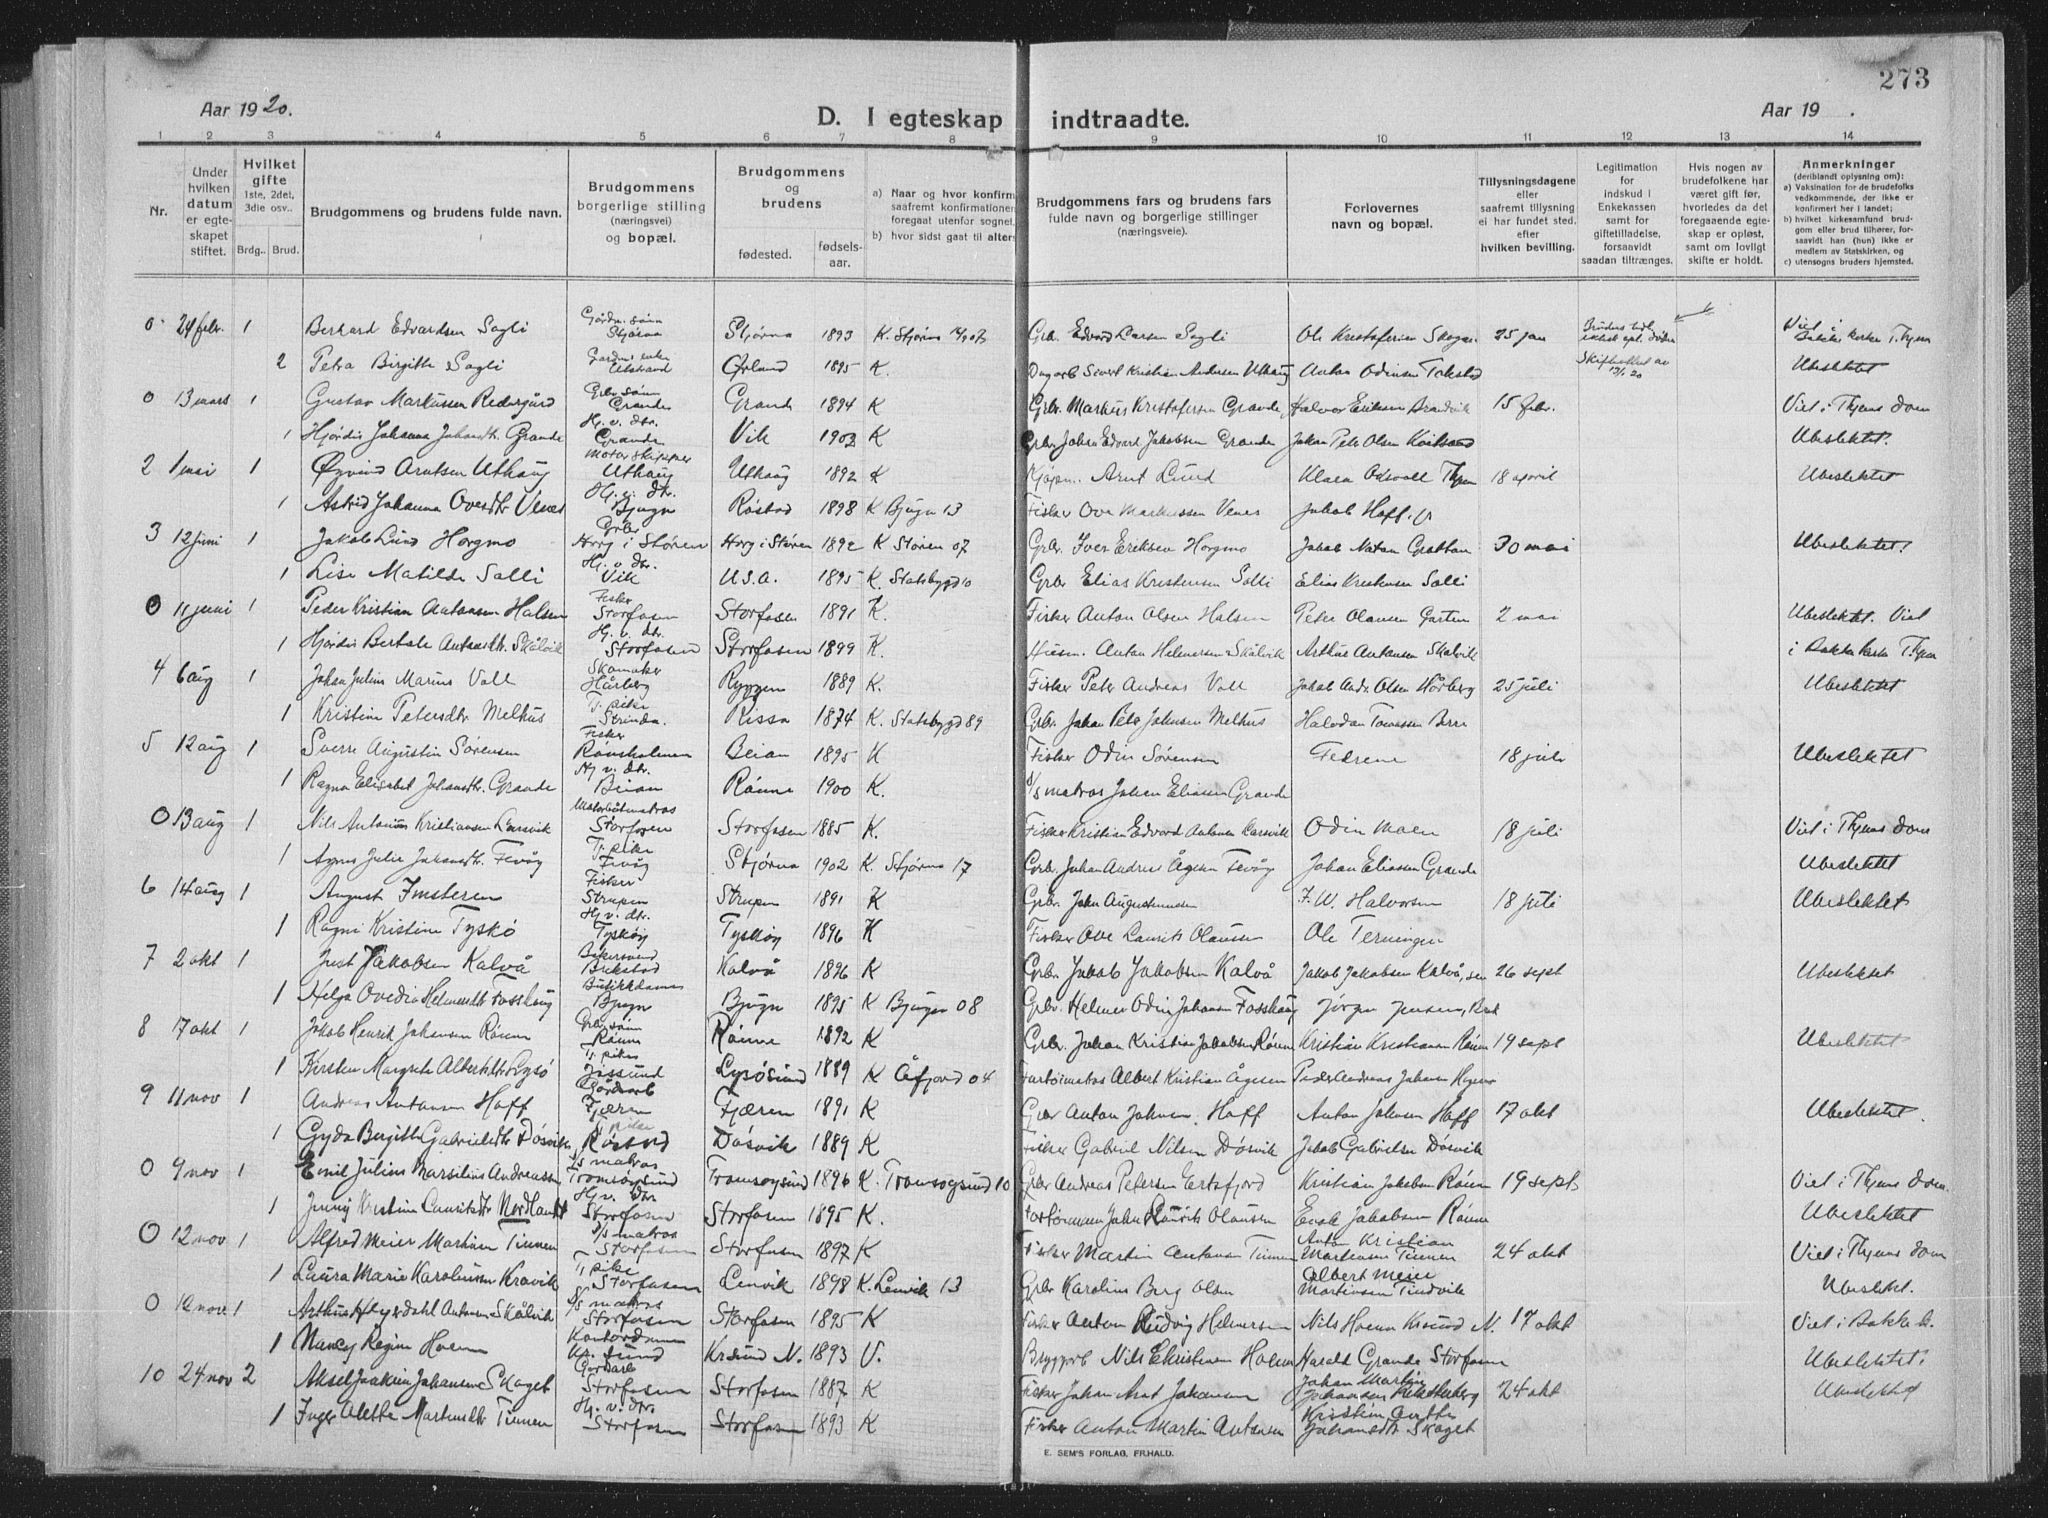 273
Aar 1920.
D. I egteskap indtraadte.
Aar 19 .
1 2 3 4 5 6 7 8 9 10 11 12 13 14
Nr.
Under hvilken datum er egteskapet stiftet.
Hvilket gifte 1ste, 2det, 3die osv..
Brdg.. Brud.
Brudgommens og brudens fulde navn.
Brudgommens borgerlige stilling (næringsvei) og bopæl.
Brudgommens og brudens
fødested. fødselsaar.
a) Naar og hvor konfirm saafremt konfirmationen foregaat utenfor sognet
b) hvor sidst gaat til alters
Brudgommens fars og brudens fars fulde navn og borgerlige stillinger (næringsveie).
Forlovernes navn og bopæl.
Tillysningsdagene eller saafremt tillysning ei har fundet sted, efter hvilken bevilling.
Legitimation for indskud i Enkekassen samt for giftetilladelse, forsaavidt saadan tiltrænges.
Hvis nogen av brudefolkene har været gift før, hvorledes da det foregaaende egteskap er opløst, samt om lovligt skifte er holdt.
Anmerkninger (deriblandt oplysning om): a) Vaksination for de brudefolks vedkommende, der ikke er konfirmert her i landet; b) hvilket kirkesamfund brudgom eller brud tilhører, forsaavidt han (hun) ikke er medlem av Statskirken, og c) utensogns bruders hjemsted.
0 24 febr. 1 Berhard Edvardsen Sagli Stjørna Stjørna 1893 K. Stjørna Grb. Edvard Larsen Sagli Ole Kristofersen 25 jan Viet i Bakke kirke T.hjem
2 Petra Birgitte Sagli Ørland 1895 K. Dagarb Sivert Kristian Andersen Uthaug Anton Odinsen Ubeslektet
0 13 mars 1 Gustav Markussen Redergård Grbr. søn Grande Grande 1894 K Grbr. Markus Kristofersen Grande, Halvor Eriksen 15 febr. Viet i T.hjems dom
1 Hjørdis Johanna Johansdtr. Grande Hj. v. dtr. Grande Vik 1902 K Grbr. Johan Edvard Jakobsen Grande Johan Petr Olsen Ubeslektet.
2 1 mai 1 Øyvind Arntsen Uthaug Motorskipper Uthaug Uthaug 1892 K Kjøpm. Arnt Lund Klara Odsvall T.hjem 18 april Ubeslektet
1 Astrid Johanna Ovesdtr Venes Hj. v. dtr. Bjugn Røstad 1898 K Bjugn 13 Fisker Ove Markussen Venes Jakob Hoff. U
3 12 juni 1 Jakob Lund Horgmo Grbr Horg i Støren Horg i Støren 1892 K Støren 07 Grbr. Iver Eriksen Horgmo Jakob Natan Grøttan 30 mai Ubeslektet.
1 Lise Matilde Solli Hj. v. dtr. Vik U.S.A. 1895 K. Statsbygd 10 Grbr Elias Kristensen Solli Elias Kristensen Solli
0 11 juni 1 Peder Kristian Antonsen Halsen Fisker Storfosen Storfosen 1891 K. Fisker Anton Olsen Halsen Peter Olausen Garten 2 mai Ubeslektet. Viet
1 Hjørdis Bertale Antonsdtr. Skålvik Hj. v. dtr. Storfosen Storfosen 1899 K. Husm. Anton Helmersen Skålvik Arthur Antonsen Skalvik i Bakke kirke T.hjem
4 6 aug 1 Johan Julius Marius Voll Skomaker Hårberg Ryggen 1889 K. Fisker Peter Andreas Voll Jakob Andr. Olsen Hårberg 25 juli Ubeslektet
1 Kristine Petersdtr Melhus Tj. pike Strinda. Rissa 1874 K. Statsbygd 89 Grbr. Johan Peter Johnsen Melhus Halvdan Tomassen Berre
5 12 aug 1 Sverre Augustin Sørensen Fisker Rønsholmen Beian 1895 K Fisker Odin Sørensen Fedrene 18 juli Ubeslektet
1 Ragna Elisabet Johansdtr. Grande Hj v. dtr. Beian Rønne 1900 K. s/s matros Johan Eliasen Grande
0 13 aug 1 Nils Antonius Kristiansen Karsvik Motorbåtmatros Storfosen Storfosen 1885 K. Fisker Kristian Edvard Antonsen Karsvik Odin Moen 18 juli Viet i T.hjems dom
1 Agnes Julie Johansdtr. Fevåg Tj. pike Fevåg Stjørna 1902 K. Stjørna 17 Grbr. Johan Andreas Ågesen Fevåg Johan Eliassen Grande Ubeslektet
6 14 aug 1 August Imsteren Fisker Strupen Strupen 1891 K Grbr. John Augustinusen F. W. Halvorsen 18 juli Ubeslektet
1 Ragni Kristine Tyskø Hj v. dtr. Tyskøy Tyskøy 1896 K Fisker Ove Laurits Olaussen Ole Terningen
7 2 okt 1 Just Jakobsen Kalvå Bakersvend Brekstad Kalvå 1896 K Grbr. Jakob Jakobsen Kalvå Jakob Jakobsen Kalvå, sen 26 sept Ubeslektet
1 Helga Ovedia Helmersdtr Fosshaug Butikkdame Bjugn Bjugn 1895 K Bjugn 08 Grbr. Helmer Odin Johansen Fosshaug Jørgen Jensen, Brek
8 17 okt 1 Jakob Henrik Johansen Rønne Grbr. sønn Rønne Rønne 1892 K Grbr. Johan Kristian Jakobsen Rønne Kristian Kristiansen Rønne 19 sept Ubeslektet
1 Kirsten Margrete Albertsdtr Lysø Tj. pike Jøssund Lysøsund 1889 K Åfjord 04 Albert Kristian Ågesen Peder Andreas Johansen
9 11 nov 1 Andreas Antonsen Hoff Gårdarb Fjæren Fjæren 1891 K Grbr Anton Johnsen Hoff Anton Johnsen Hoff 17 okt Ubeslektet.
1 Gyda Birgitte Gabrielsdtr Døsvik Tj pike Røstad Døsvik 1889 K Fisker Gabriel Nilsen Døsvik Jakob Gabrielsen Døsvik
0 9 nov 1 Emil Julius Marsilius Andreassen s/s matros Tromsøysund Tromsøysund 1896 K. Tromsøysund 10 Grbr Andreas Petersen Kristian Jakobsen Rønne 19 sept Viet i T.hjems dom.
1 Jenny Kristine Lauritsdtr Nordlandt Hj. v. dtr Storfosen Storfosen 1895 K. Johan Laurits Olausen Enok Jakobsen Rønne Ubeslektet
0 12 nov 1 Alfred Meier Martinsen Tinnen s/s matros Storfosen Storfosen 1897 K Fisker Martin Antonsen Tinnen Anton Kristian Martinsen Tinnen 24 okt Viet i T.hjems dom
1 Laura Marie Karoliussen Kravik Tj pike Storfosen Lenvik 1898 K. Lenvik 13 Grbr Karolius Berg Olsen Albert Meier Martinsen Tindvik Ubeslekt.
0 12 nov. 1 Arthur Heyerdahl Antonsen Skålvik s/s matros Storfosen Storfosen 1895 K Fisker Anton Ludvig Helmersen Nils Hoem Krsund N. 17 okt Viet i Bakke k.
1 Nancy Regine Hoem Kontordame Kr. sund Krsund N. 1893 U. Bryggerb Nils Christian Hoem Harald Grande Storfosen Ubeslektet.
10 24 nov 2 Aksel Joakim Johansen Skaget Gårdarb Storfosen Storfosen 1887 K Fisker Johan Arnt Johansen Johan Martin Johansen 24 okt Ubeslektet
1 Inger Alette Martinsdtr Tinnen Hj. v. dtr Storfosen Storfosen 1893 K Fisker Anton Martin Antonsen Kristine Johansdtr Skaget
E. SEM'S FORLAG, FR.HALD.